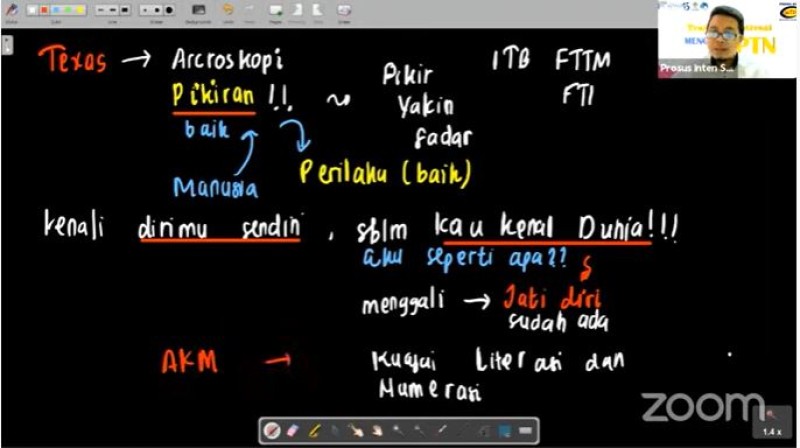 Texas → Arcroskopi
ITB FTTM
FTI
Pikiran !!
Pikir
Yakin
Sadar
baik
Manusia
Perilaku (baik)
kenali dirimu sendiri , sblm kau kenal Dunia!!!
aku seperti apa??
menggali → Jati diri
sudah ada
AKM → Kuasai Literasi dan
Numerasi
PTN
Prosus Inten S...
zoom
1.4 x